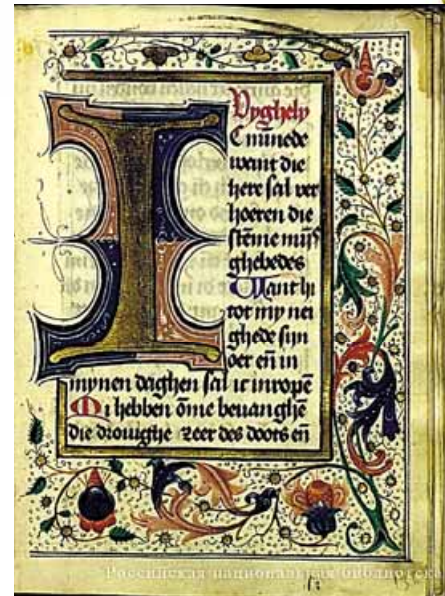 I
Vyghely
C mı̄nede
want die
here sal ver
hoeren die
stēme mijs
ghebedes
Want hi
tot my nei
ghede sijn
oer eñ in
mynen daghen sal ic inropē
Mi hebben ōme bevanghē
die drouighe zeer des doots eñ
Российская национальная библиотека